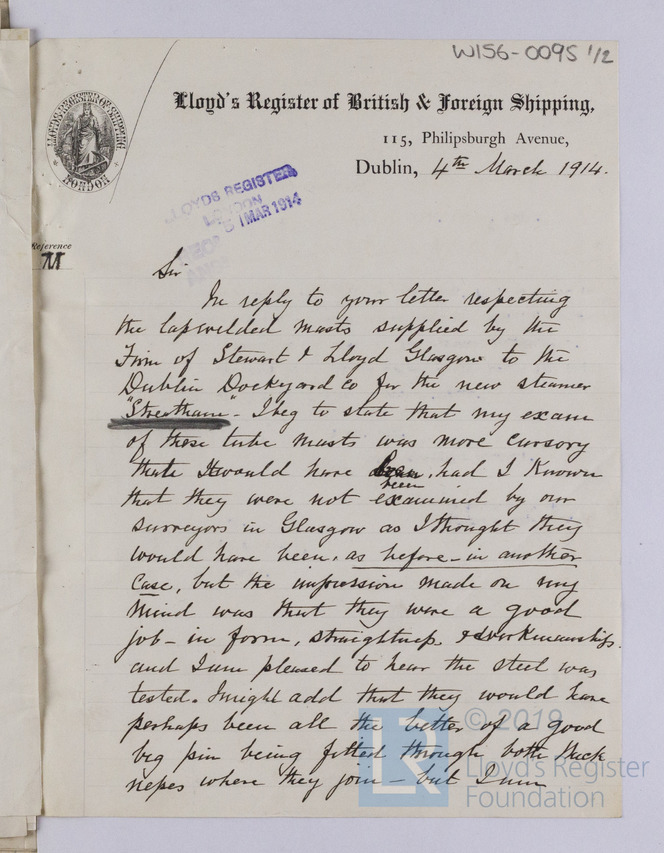 W156-0095 1/2
Lloyd's Register of British & Foreign Shipping,
115, Philipsburgh Avenue,
Dublin, 4th March 1914.
LLOYD'S REGISTER OF SHIPPING
LONDON
LLOYDS REGISTER
LONDON
MAR 1914
Reference
M
Sir
In reply to your letter respecting
the lapwelded masts supplied by the
Firm of Stewart & Lloyd Glasgow to the
Dublin Dockyard Co for the new steamer
"Streatham" - I beg to state that my exam
of these tube masts was more cursory
than it would have been, had I known
that they were not examined by our
surveyors in Glasgow as I thought they
would have been, as before - in another
case, but the impression made on my
mind was that they were a good
job - in form, straightness & workmanship.
and I am pleased to hear the steel was
tested. I might add that they would have
perhaps been all the better of a good
big pin being fitted through both thick
where they join - but I am
© 2019
LR
Lloyd's Register
Foundation